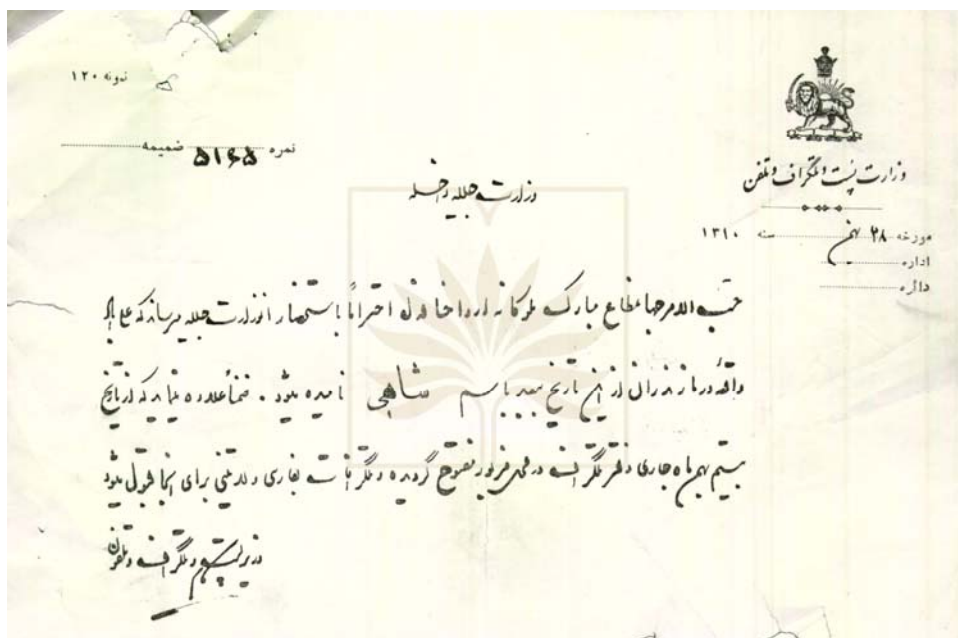 نمونه ۱۲۰
وزارت پست و تلگراف و تلفن
نمره ۵۱۶۵ ضمیمه
مورخه ۲۸ بهمن سنه ۱۳۱۰
اداره
دائره
وزارت جلیله داخله
حسب الامر جهانمطاع مبارک ملوکانه ارواحنا فداه احتراماً باستحضار آنوزارت جلیله میرساند که علی آباد
واقعه در مازندران از این تاریخ ببعد باسم شاهی نامیده میشود . ضمناً علاوه مینماید که از تاریخ
بیستم بهمن ماه جاری دفتر تلگرافی در محل مزبور مفتوح گردیده و تلگرافات بفارسی و لاتینی برای آنجا قبول میشود
وزیر پست و تلگراف و تلفن